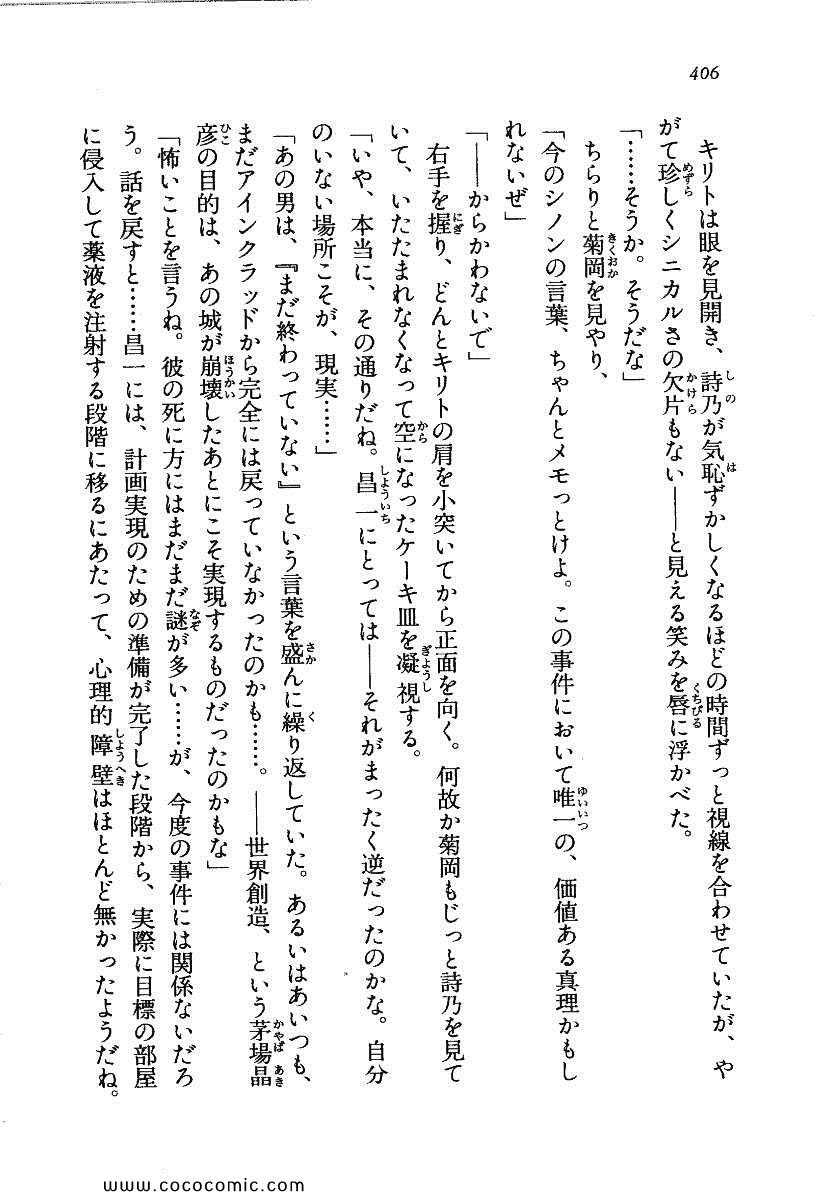 406
キリトは眼を見開き、詩乃が気恥ずかしくなるほどの時間ずっと視線を合わせていたが、や
がて珍しくシニカルさの欠片もない――と見える笑みを唇に浮かべた。
「……そうか。そうだな」
ちらりと菊岡を見やり、
「今のシノンの言葉、ちゃんとメモっとけよ。この事件において唯一の、価値ある真理かもし
れないぜ」
「――からかわないで」
右手を握り、どんとキリトの肩を小突いてから正面を向く。何故か菊岡もじっと詩乃を見て
いて、いたたまれなくなって空になったケーキ皿を凝視する。
「いや、本当に、その通りだね。昌一にとっては――それがまったく逆だったのかな。自分
のいない場所こそが、現実……」
「あの男は、『まだ終わっていない』という言葉を盛んに繰り返していた。あるいはあいつも、
まだアインクラッドから完全には戻っていなかったのかも……。――世界創造、という茅場晶
彦の目的は、あの城が崩壊したあとにこそ実現するものだったのかもな」
「怖いことを言うね。彼の死に方にはまだまだ謎が多い……が、今度の事件には関係ないだろ
う。話を戻すと……昌一には、計画実現のための準備が完了した段階から、実際に目標の部屋
に侵入して薬液を注射する段階に移るにあたって、心理的障壁はほとんど無かったようだね。
www.cococomic.com